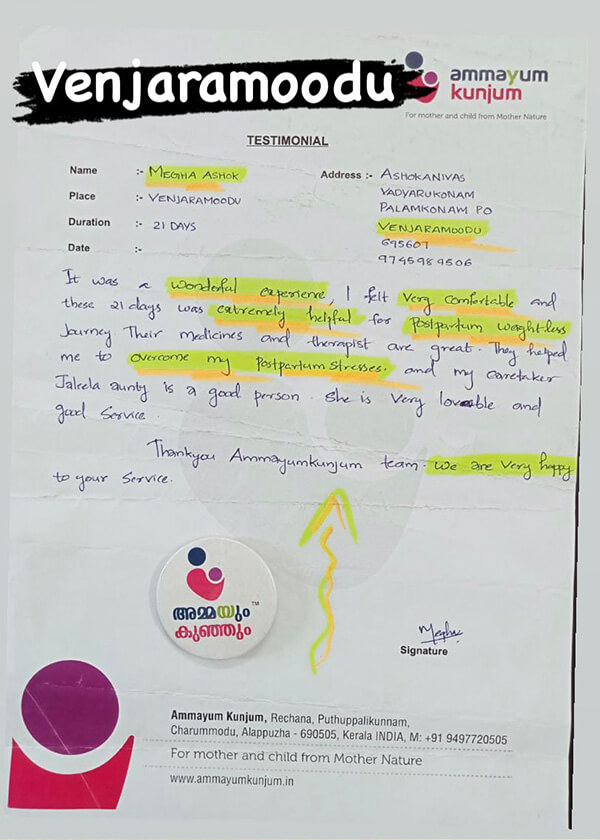 Venjaramoodu
ammayum
kunjum
For mother and child from Mother Nature
TESTIMONIAL
Name :- MEGHA ASHOK
Place :- VENJARAMOODU
Duration :- 21 DAYS
Date :-
Address :- ASHOKANIVAS
VADYARUKONAM
PALAMKONAM PO
VENJARAMOODU
695607
9745989506
It was a wonderful experience, I felt very comfortable and
these 21 days was extremely helpful for Postpartum weight-loss
Journey Their medicines and therapist are great. They helped
me to overcome my Postpartum Stresses. and my caretaker
Jaleela aunty is a good person. She is very lovable and
good Service.
Thankyou Ammayumkunjum team. we are very happy
to your Service.
അമ്മയും TM
കുഞ്ഞും
Signature
Ammayum Kunjum, Rechana, Puthuppalikunnam,
Charummodu, Alappuzha - 690505, Kerala INDIA, M: +91 9497720505
For mother and child from Mother Nature
www.ammayumkunjum.in